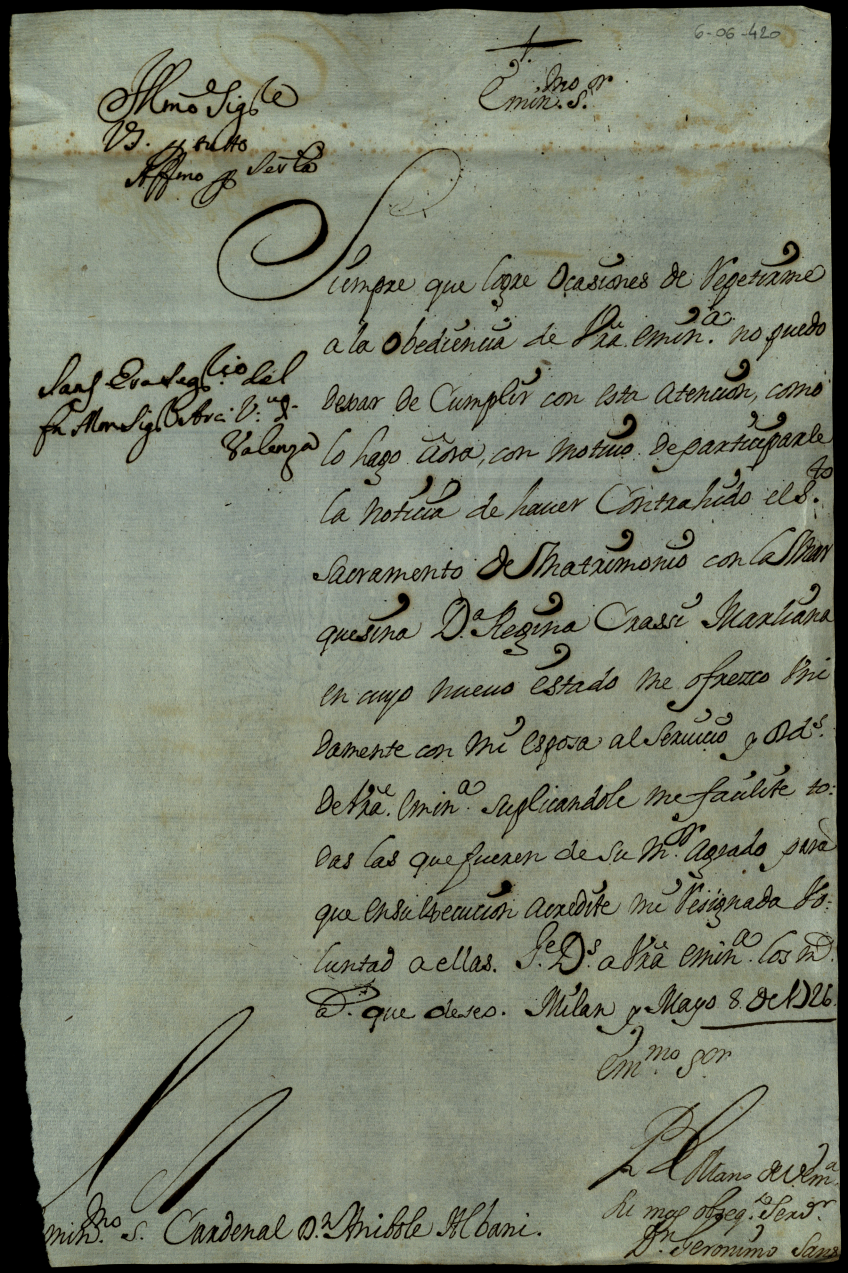 6-06-420
+
Emin.mo S.or
Illmo Sig.re
VS. p tutto
Affmo p Ser
Siempre que logre Ocasiones de Repetirme
a la Obediencia de Vra. emin.a no puedo
dexar de Cumplir con esta atencion, como
lo hago aora, con motivo de participarle
la noticia de haver Contrahido el S.to
Sacramento de Matrimonio con la Mar
quesina D.a Regina Crassi Marliana
en cuyo nuevo estado me ofrezco Vni
damente con mi esposa al Servicio y Ord.s
de Vra. emin.a suplicandole me facilite to:
das las que fueren de su m.or agrado para
que en su execucion acredite mi Resignada Vo:
luntad a ellas. G.e D.s a Vra emin.a los m.s
a.s que deseo. Milan y Mayo 8 de 1726
Em.mo S.or
Sanz
fu Mon Sig.re Arci V.
Valenza
B L Mano de V em.a
su mas obseq.do Serv.r
D.n Geronimo Sanz
emin.mo S. Cardenal D.n Anibole Albani.